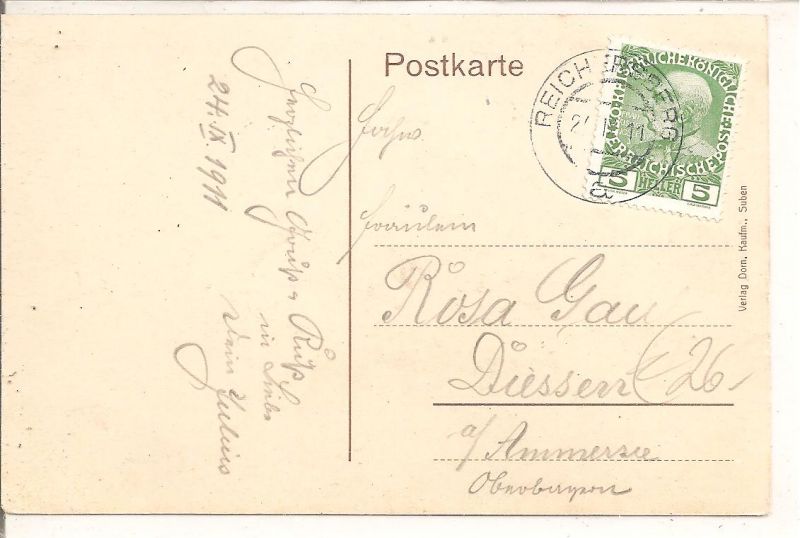 Postkarte
24. IX. 1911
Herzlichen Gruß u Kuß
in Liebe
Dein Julius
Fräulein
Rosa Gau
Diessen 26
a/ Ammersee
Oberbayern
REICHERSBERG
KAISERLICHE KÖNIGLICHE
ÖSTERREICHISCHE POST
5 HELLER 5
Verlag Dom. Kaufm., Suben